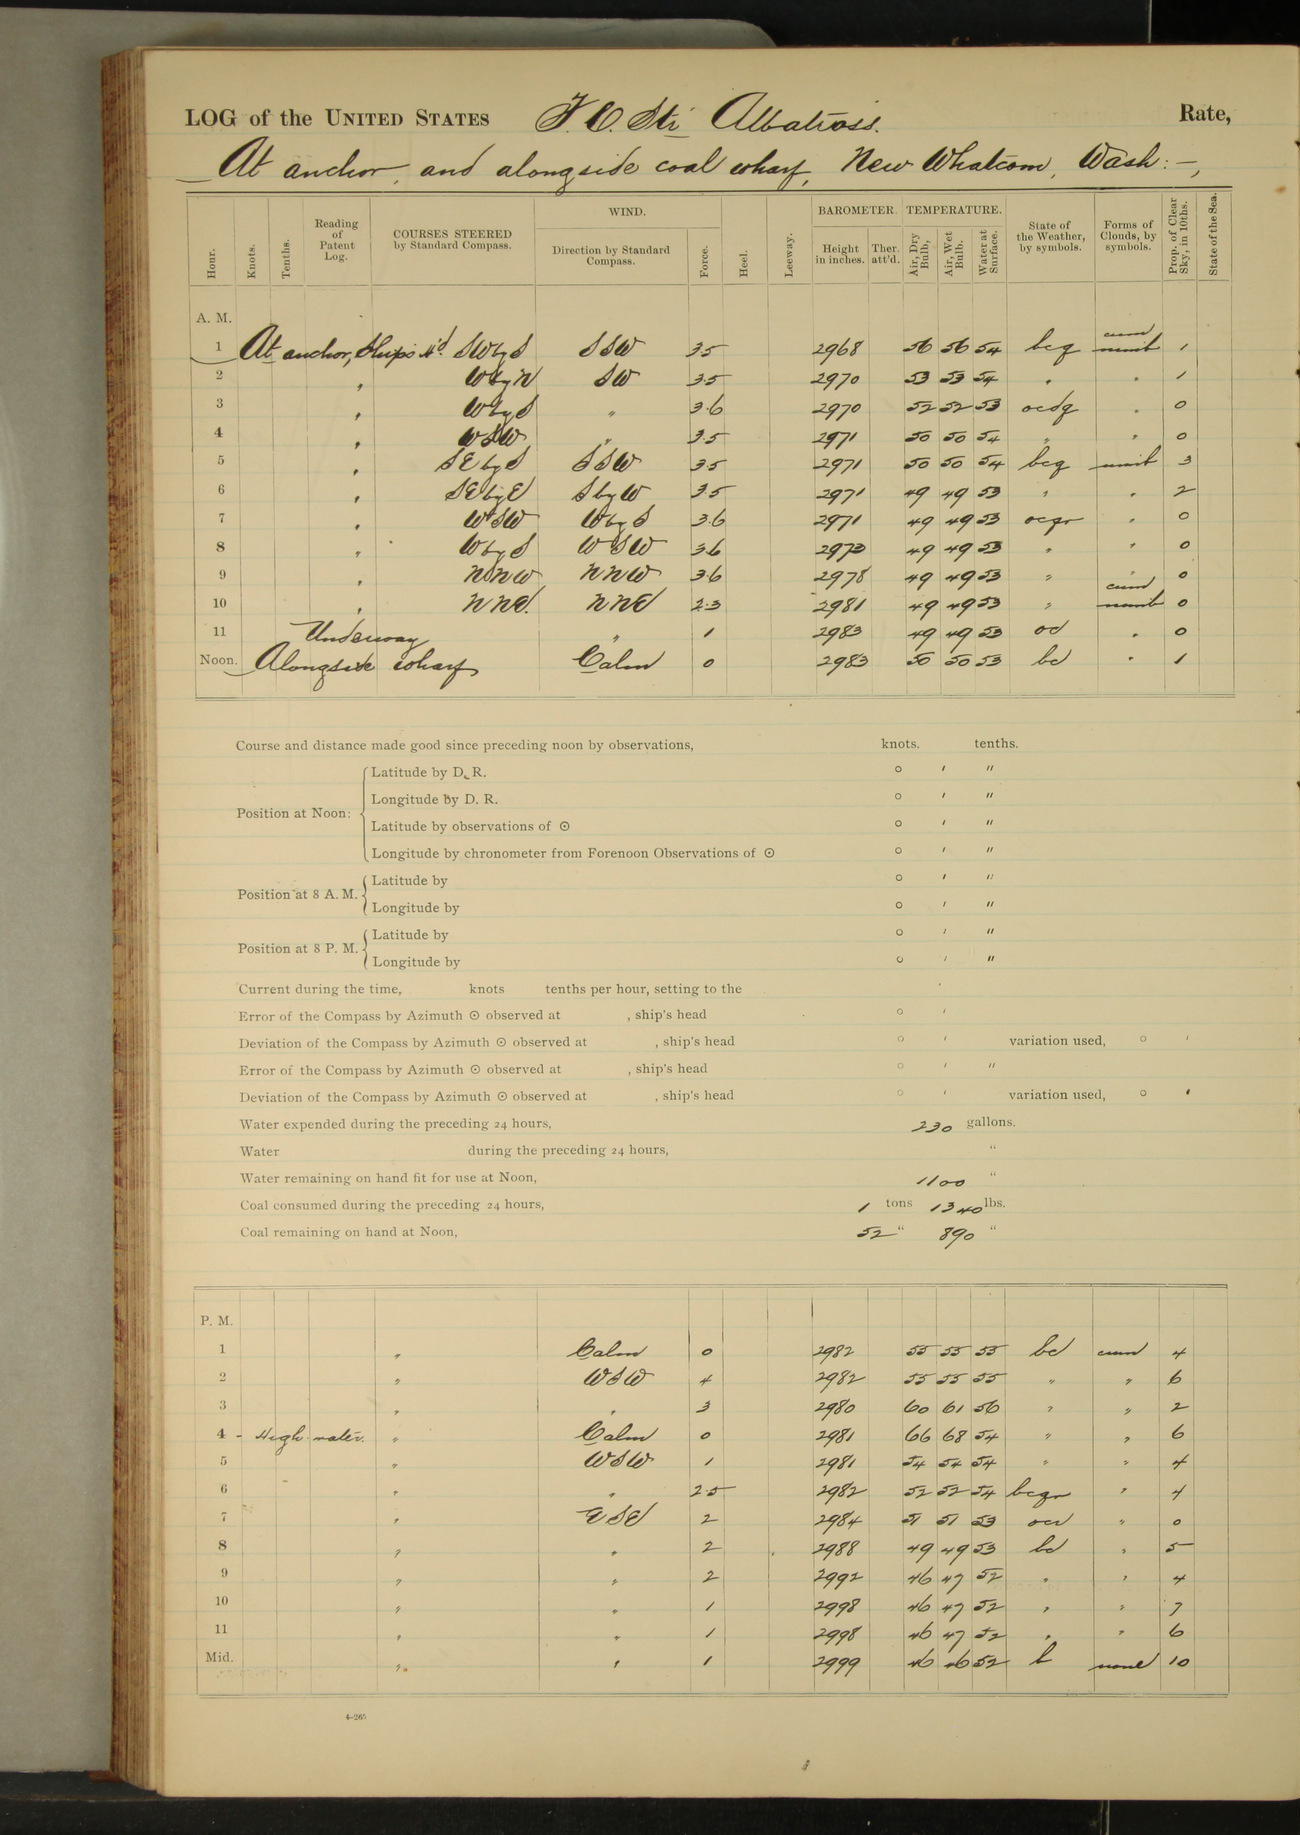 LOG of the UNITED STATES F. C. Str Albatross. Rate,
At anchor, and alongside coal wharf, New Whatcom, Wash:-,
Hour. Knots. Tenths. Reading of Patent Log. COURSES STEERED by Standard Compass. WIND. Direction by Standard Compass. Force. Heel. Leeway. BAROMETER. Height in inches. Ther. att'd. TEMPERATURE. Air, Dry Bulb, Air, Wet Bulb. Water at Surface. State of the Weather, by symbols. Forms of Clouds, by symbols. Prop. of Clear Sky, in 10ths. State of the Sea.
A. M.
1 At anchor, Ships H'd SWbyS SSW 3.5 2968 56 56 54 bcq cum nimb 1
2 " WbyN SW 3.5 2970 53 53 54 " " 1
3 " WbyS " 3.6 2970 52 52 53 ocdq " 0
4 " WSW " 3.5 2971 50 50 54 " " 0
5 " SEbyS SSW 3.5 2971 50 50 54 bcq nimb 3
6 " SEbyE SbyW 3.5 2971 49 49 53 " " 2
7 " WSW WbyS 3.6 2971 49 49 53 ocqr " 0
8 " WbyS WSW 3.6 2973 49 49 53 " " 0
9 " NNW NNW 3.6 2978 49 49 53 " " 0
10 " NNE. NNE 2.3 2981 49 49 53 " cum nimb 0
11 Underway " 1 2983 49 49 53 od " 0
Noon. Alongside wharf Calm 0 2983 50 50 53 bc " 1
Course and distance made good since preceding noon by observations, knots. tenths.
Position at Noon:
Latitude by D. R. ° ′ ″
Longitude by D. R. ° ′ ″
Latitude by observations of ⊙ ° ′ ″
Longitude by chronometer from Forenoon Observations of ⊙ ° ′ ″
Position at 8 A. M.
Latitude by ° ′ ″
Longitude by ° ′ ″
Position at 8 P. M.
Latitude by ° ′ ″
Longitude by ° ′ ″
Current during the time, knots tenths per hour, setting to the
Error of the Compass by Azimuth ⊙ observed at , ship's head ° ′
Deviation of the Compass by Azimuth ⊙ observed at , ship's head ° ′ variation used, ° ′
Error of the Compass by Azimuth ⊙ observed at , ship's head ° ′ ″
Deviation of the Compass by Azimuth ⊙ observed at , ship's head ° ′ variation used, ° ′
Water expended during the preceding 24 hours, 230 gallons.
Water during the preceding 24 hours, "
Water remaining on hand fit for use at Noon, 1100 "
Coal consumed during the preceding 24 hours, 1 tons 1340 lbs.
Coal remaining on hand at Noon, 52 " 890 "
P. M.
1 " Calm 0 2982 55 55 55 bc cum 4
2 " WSW 4 2982 55 55 55 " " 6
3 " " 3 2980 60 61 56 " " 2
4 - High water. " Calm 0 2981 66 68 54 " " 6
5 " WSW 1 2981 54 54 54 " " 4
6 " " 2.5 2982 52 52 54 bcqr " 4
7 " ESE 2 2984 51 51 53 ocr " 0
8 " " 2 2988 49 49 53 bc " 5
9 " " 2 2992 46 47 52 " " 4
10 " " 1 2998 46 47 52 " " 7
11 " " 1 2998 46 47 52 " " 6
Mid. " " 1 2999 46 46 52 b none 10
4-265